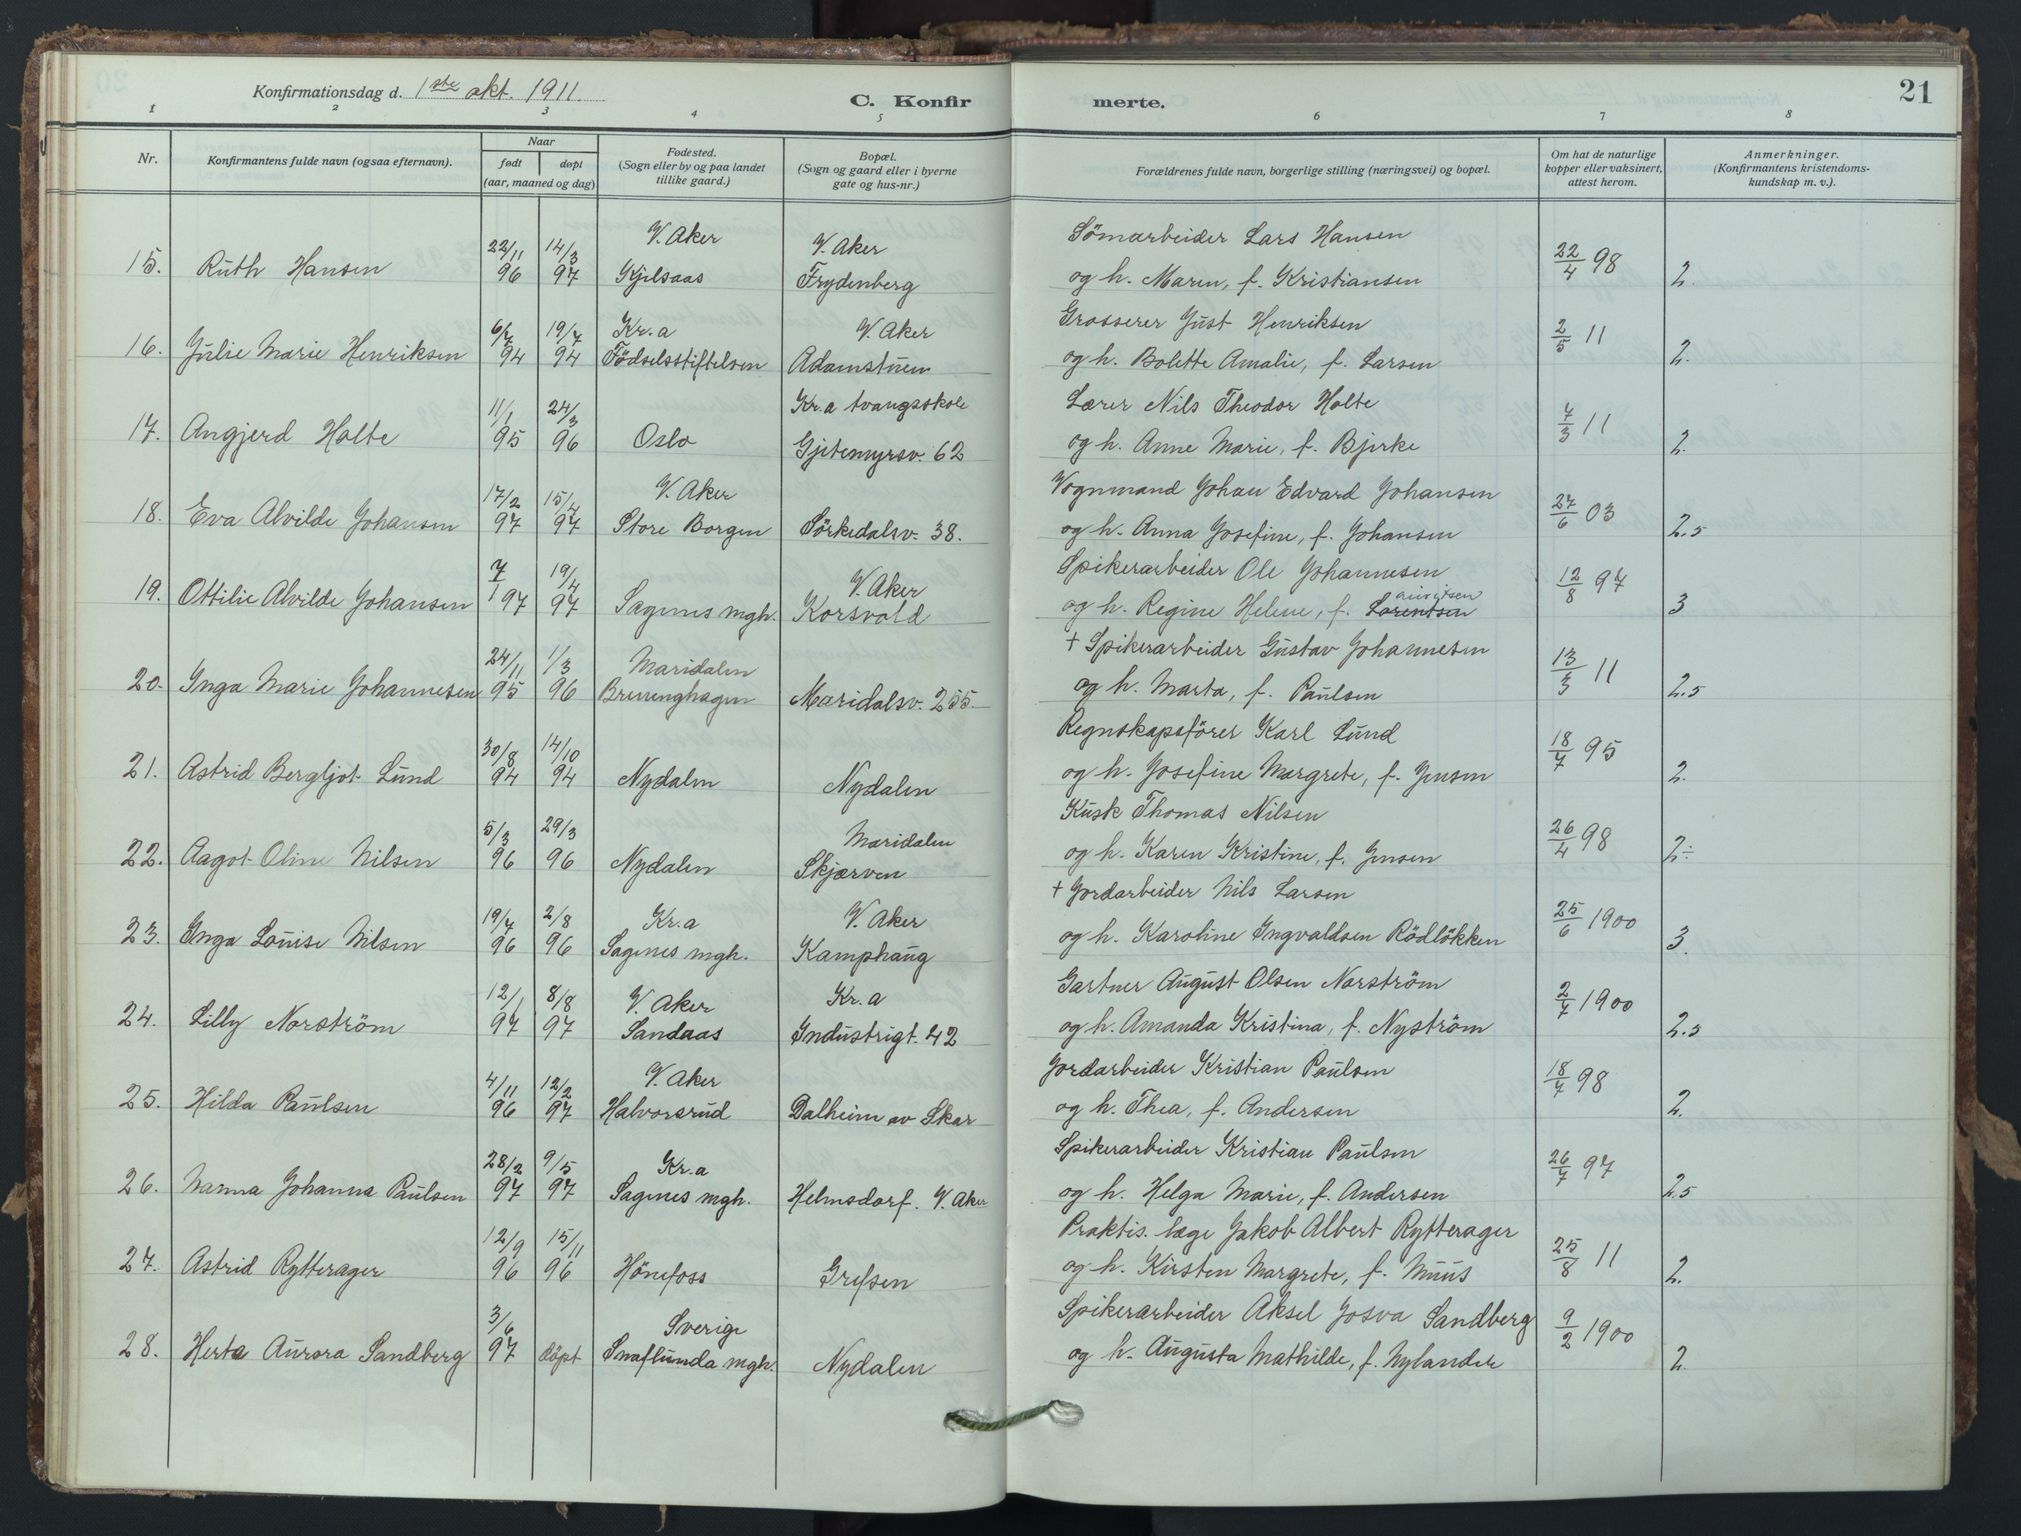 Konfirmationsdag d. 1ste okt. 1911.
C. Konfirmerte.
21
1 2 3 4 5 6 7 8
Nr.
Konfirmantens fulde navn (ogsaa efternavn).
Naar
født døpt
(aar, maaned og dag)
Fødested.
(Sogn eller by og paa landet
tillike gaard.)
Bopæl.
(Sogn og gaard eller i byerne
gate og hus-nr.)
Forældrenes fulde navn, borgerlige stilling (næringsvei) og bopæl.
Om hat de naturlige
kopper eller vaksinert,
attest herom.
Anmerkninger.
(Konfirmantens kristendoms-
kundskap m. v.).
22/11 14/3 V. Aker V. Aker Sömarbeider Lars Hansen
15. Ruth Hansen 96 97 Kjelsaas Frydenberg og h. Maren, f. Kristiansen 22/4 98 2.
6/7 19/7 Kr.a V. Aker Grosserer Just Henriksen
16. Julie Marie Henriksen 94 94 Födselsstiftelsen Adamstuen og h. Bolette Amalie, f. Larsen 2/5 11 2.
11/1 24/3 Kr.a tvangsskole Lærer Nils Theodor Holte
17. Angjerd Holte 95 96 Oslo Gjitemyrsv. 62 og h. Anne Marie, f. Bjerke 7/3 11 2.
17/2 15/4 V. Aker Vognmand Johan Edvard Johansen
18. Eva Alvilde Johansen 97 97 Store Borgen Sörkedalsv. 38. og h. Anna Josefine, f. Johansen 27/6 03 2.5
7/1 19/4 V. Aker Spikerarbeider Ole Johannesen
19. Ottilie Alvilde Johansen 97 97 Sagenes mgh. Korsvold og h. Regine Helene, f. Lorentsen 12/8 97 3
24/11 1/3 Maridalen + Spikerarbeider Gustav Johannesen
20. Inga Marie Johannesen 95 96 Brennenghagen Maridalsv. 255. og h. Marta, f. Paulsen 13/3 11 2.5
30/8 14/10 Regnskapsförer Karl Lund
21. Astrid Bergljot Lund 94 94 Nydalen Nydalen og h. Josefine Margrete, f. Jensen 18/7 95 2.
5/3 29/3 Maridalen Kusk Thomas Nilsen
22. Aagot Oline Nilsen 96 96 Nydalen Skjærven og h. Karen Kristine, f. Jensen 26/4 98 2÷
19/7 2/8 Kr.a V. Aker + Jordarbeider Nils Larsen
23. Inga Louise Nilsen 96 96 Sagenes mgh. Kamphaug og h. Karoline Ingvaldsen Rödlökken 25/6 1900 3.
12/1 8/8 V. Aker Kr.a Gartner August Olsen Norström
24. Lilly Norström 97 97 Sandaas Industrigt. 42 og h. Amanda Kristina, f. Nyström 2/7 1900 2.5
4/11 12/2 V. Aker Jordarbeider Kristian Paulsen
25. Hilda Paulsen 96 97 Halvorsrud Dalheim av Skar og h. Thea, f. Andersen 18/7 98 2.
28/2 9/5 Kr.a Spikerarbeider Kristian Paulsen
26. Nanna Johanna Paulsen 97 97 Sagenes mgh. Helmsdorf. V. Aker og h. Helga Marie, f. Andersen 26/7 97 2.5
12/9 15/11 Praktis. læge Jakob Albert Rytterager
27. Astrid Rytterager 96 96 Hönefoss Grefsen og h. Kirsten Margrete, f. Muus 25/8 11 2.
3/6 Sverige Spikerarbeider Aksel Josva Sandberg
28. Herta Aurora Sandberg 97 döpt Snaflunda mgh. Nydalen og h. Augusta Mathilde, f. Nylander 9/2 1900 2.